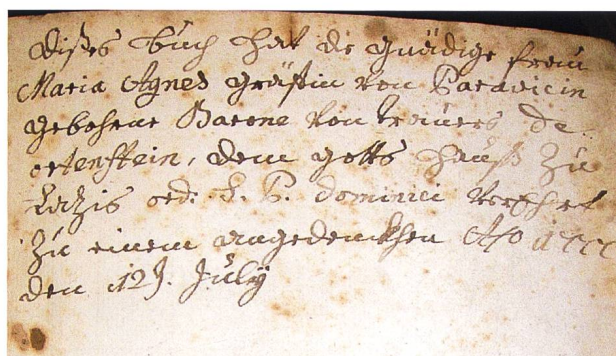 dißes buch hat die gnädige frau
Maria Agnes gräffin von Paravicin
gebohrne Barone von travers de
ortenstein, dem gotts hauß zu
Cazis ord: S. P. Dominici verehrt
zu einem angedenckhen Aō 1777
den 12ţ. July